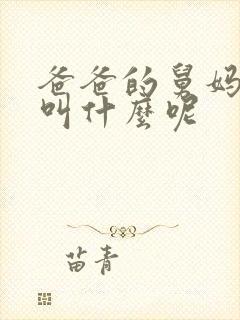 爸爸的舅妈
叫什麼呢
苗青